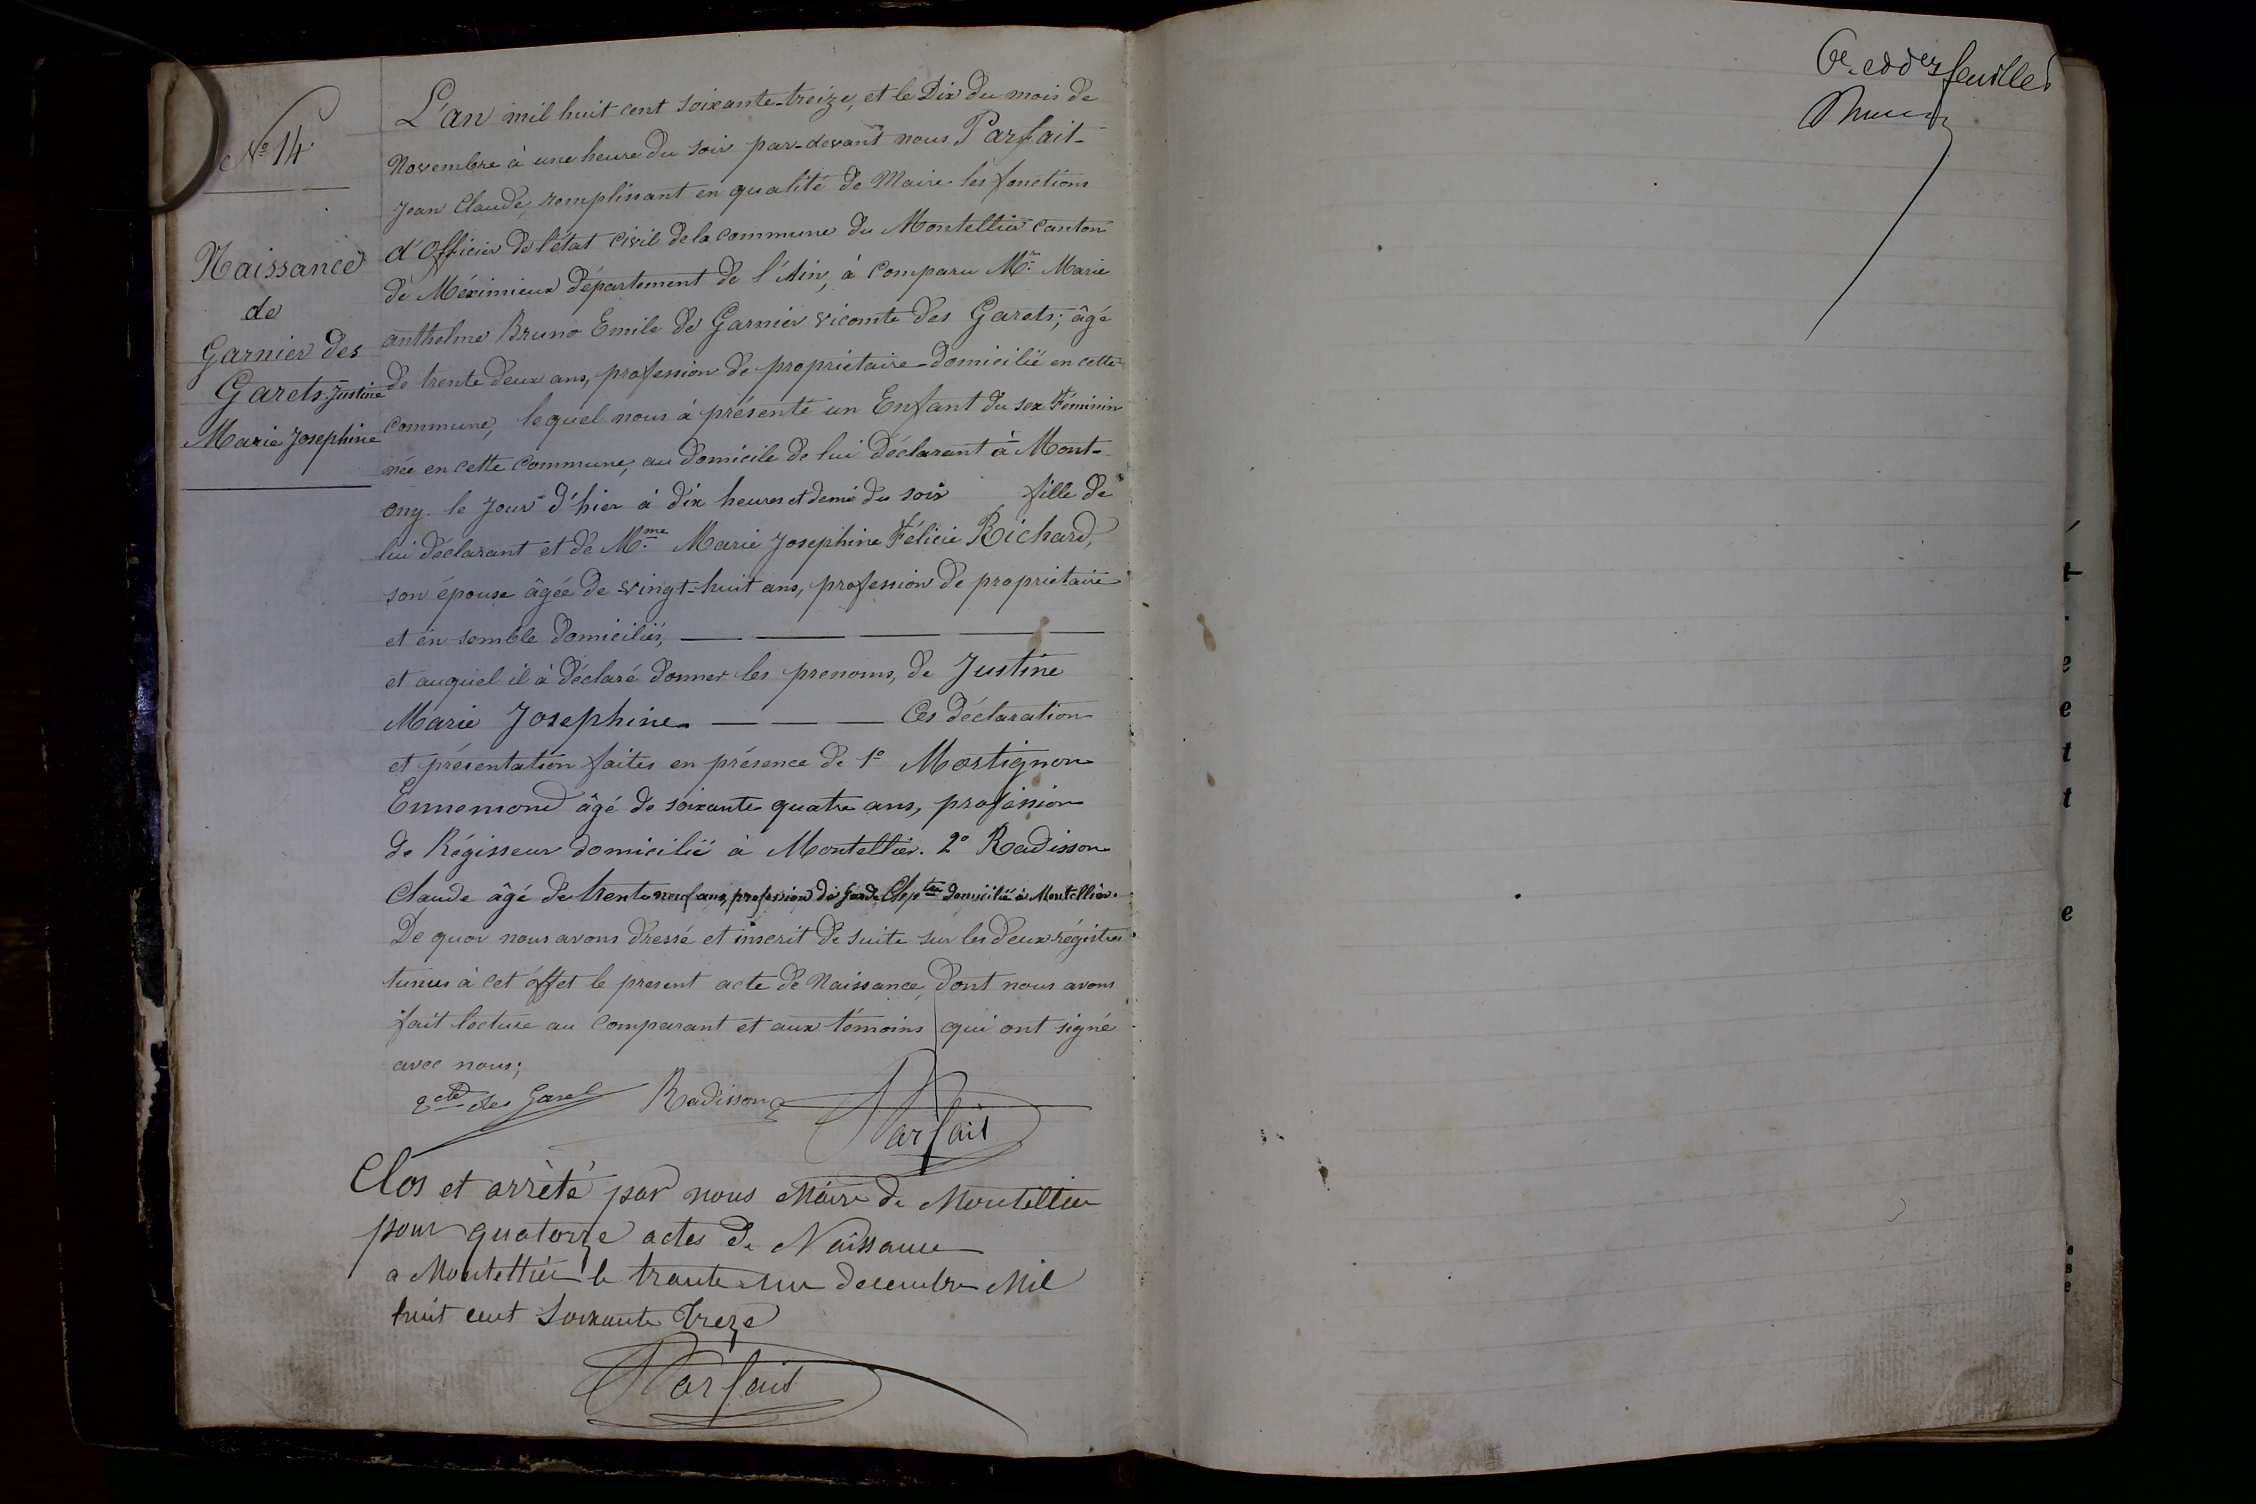 N° 14
Naissance
de
Garnier des
Garets Justine
Marie Josephine
L'an mil huit cent soixante-treize, et le Dix du mois de
Novembre à une heure du soir par-devant nous Parfait-
Jean Claude, remplissant en qualité de Maire les fonctions
d'Officier de l'état civil de la commune du Montellier canton
de Méximieux département de l'Ain, à comparu Mr. Marie
anthelme Bruno Emile de Garnier vicomte des Garets; âgé
de trente deux ans, profession de propriétaire domicilié en cette
commune, lequel nous à présenté un Enfant du sex Féminin
née en cette commune, au domicile de lui déclarant à Mont-
ony. le jour d'hier à dix heures et demi du soir fille de
lui déclarant et de Mme Marie Josephine Félicie Richard,
son épouse âgée de vingt-huit ans, profession de propriétaire
et en semble domiciliés,
et auquel il à déclaré donner les prenoms, de Justine
Marie Josephine. Ces déclaration
et présentation faites en présence de 1° Mortignon
Ennemond âgé de soixante quatre ans, profession
de Régisseur domicilié à Montellier. 2° Radisson
Claude âgé de trente neuf ans, profession de Garde Chptre domicilié à Montellier.
De quoi nous avons dressé et inscrit de suite sur les deux régistres
tenus à cet effet le present acte de Naissance, dont nous avons
fait lecture au comparant et aux témoins qui ont signé
avec nous;
Vcte des Garets Radisson Parfait
Clos et arrèté par nous Maire de Montellier
pour quatorze actes de Naissance
a Montellier le trente un decembre Mil
huit cent soixante treze
Parfait
6e et der feuillet